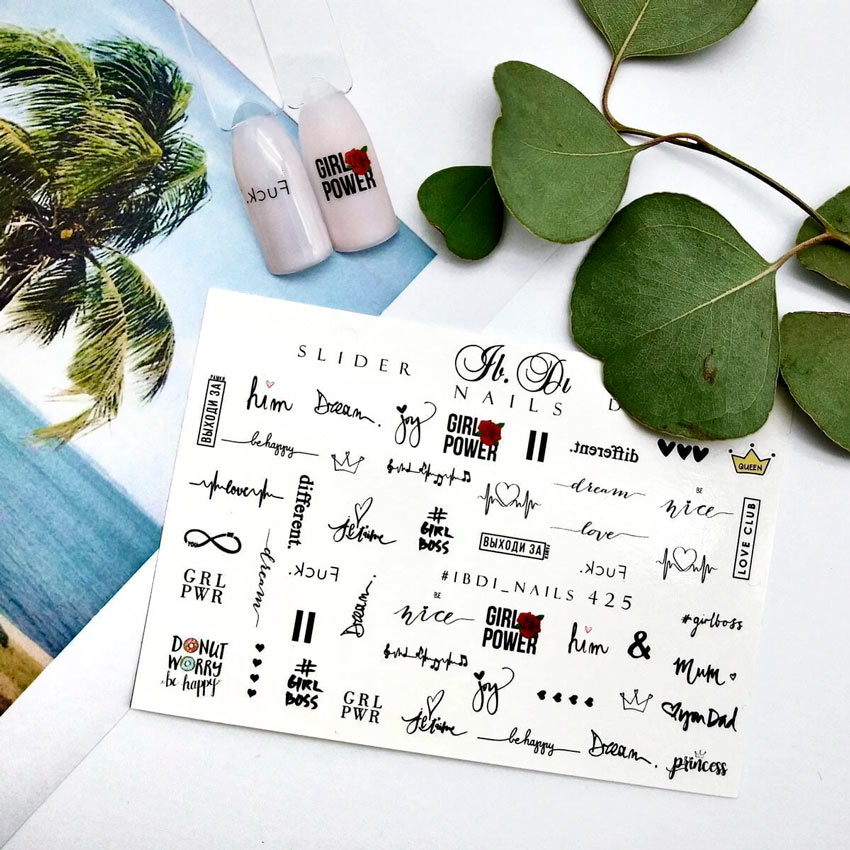 Fuck.
GIRL
POWER
SLIDER
Ib. Di
NAILS D
ВЫХОДИ ЗА
him
Dream.
joy
GIRL
POWER
different.
QUEEN
be happy
love
different.
je t'aime
#
GIRL
BOSS
dream
BE
nice
love
LOVE CLUB
YOU
ВЫХОДИ ЗА
GRL
PWR
dream
Dream.
Fuck.
#IBDI_NAILS 425
BE
nice
GIRL
POWER
him
&
#girlboss
DONUT
WORRY
be happy
#
GIRL
BOSS
GRL
PWR
je t'aime
joy
be happy
Dream.
Mum
you Dad
princess